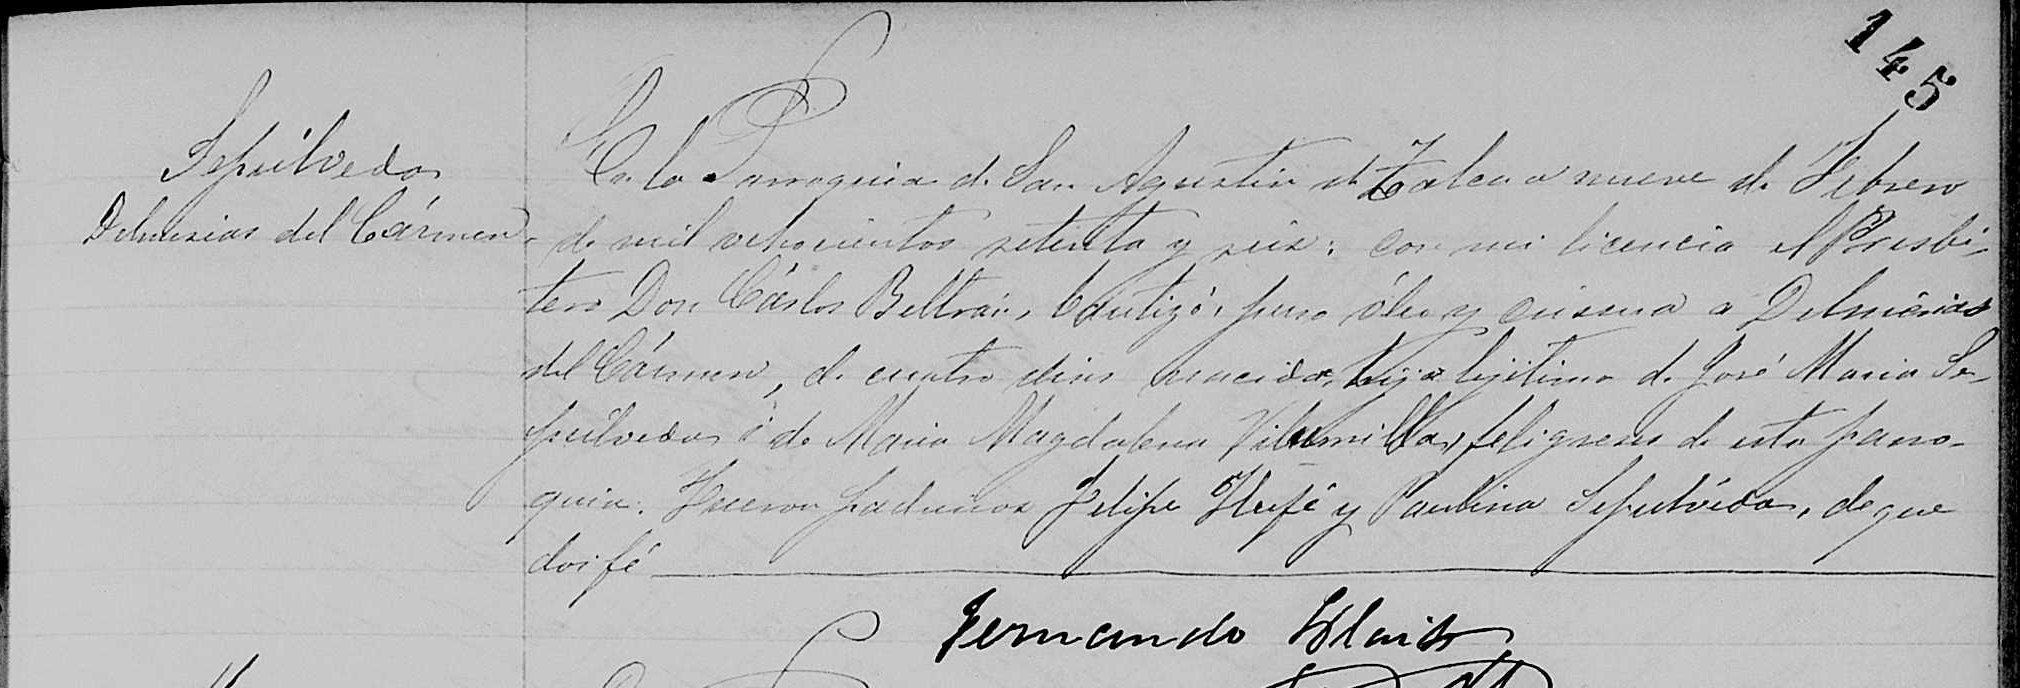 145
Sepúlveda
Delmirias del Cármen
En la Parroquia de San Agustin de Talca a nueve de Febrero
de mil ochocientos setenta y seis: con mi licencia el Presbí-
tero Don Cárlos Beltrán, bautizó, puso óleo y crisma a Delmírias
del Cármen, de cuatro dias nacida, hija lejítima de José Maria Se-
púlveda i de Maria Magdalena feligreses de esta parro-
quia. Fueron padrinos Felipe y Paulina Sepúlveda, de que
doi fé
Fernando